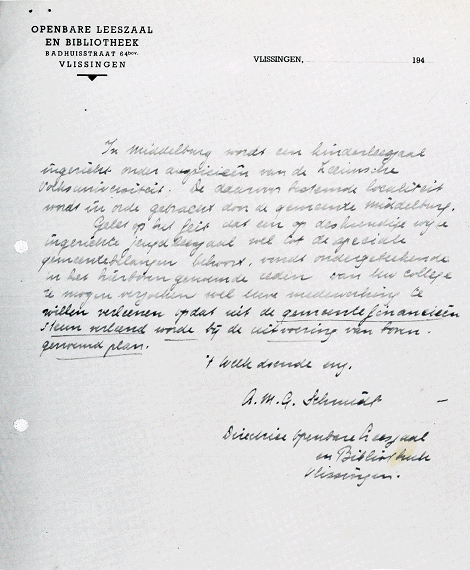 OPENBARE LEESZAAL
EN BIBLIOTHEEK
BADHUISSTRAAT 64bov.
VLISSINGEN
VLISSINGEN, 194
In Middelburg wordt een kinderleeszaal
ingericht onder auspiciën van de Zeeuwsche
Volksuniversiteit. De daarvoor bestemde localiteit
wordt in orde gebracht door de gemeente Middelburg.
Gelet op het feit dat een op deskundige wijze
ingerichte jeugdleeszaal wel tot de speciale
gemeentebelangen behoort, vindt ondergeteekende
in het hierboven genoemde reden van Uw college
te mogen verzoeken wel Uwe medewerking te
willen verleenen opdat uit de gemeentefinancieën
steun verleend worde bij de uitvoering van boven-
genoemd plan.
't Welk doende enz.
A.M.G. Schmidt
Directrice Openbare Leeszaal
en Bibliotheek
Vlissingen.